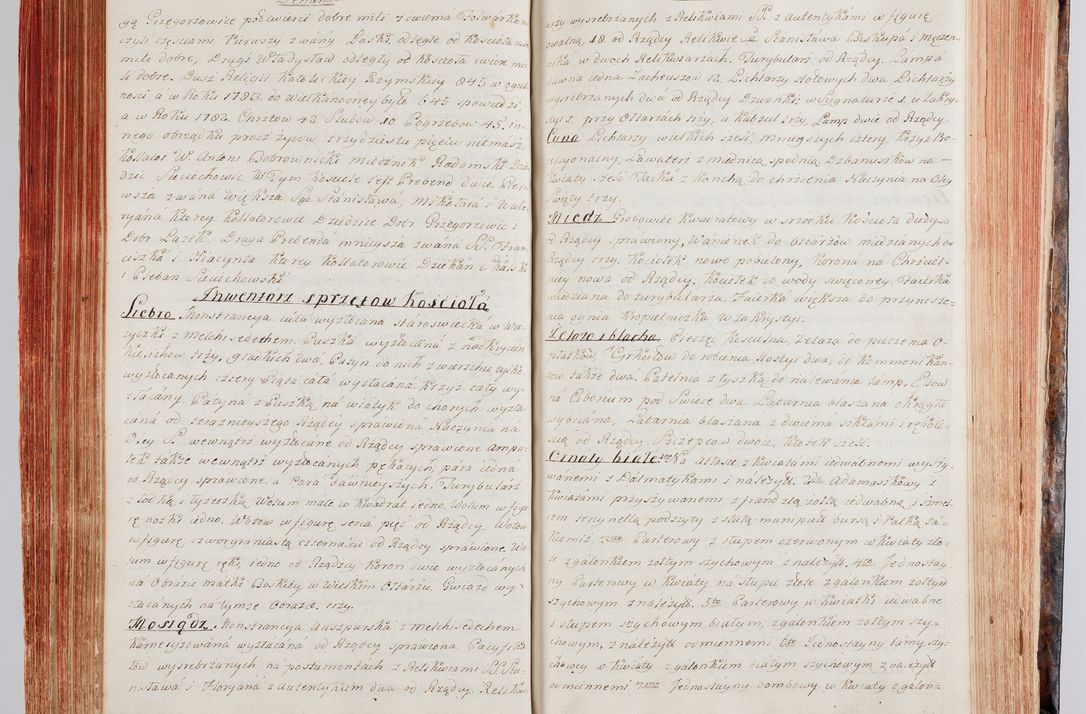 gą Grzegorzowice pod ćwierci dobre mili z dwiema Folwarkami
czyli częściami Pierwszy zwány Laski, odległe od Kościoła
mile dobre, Drugi Władysław odległy od Kościoła ćwierć mi
li dobre. Dusz Religii Katolickiey Rzymskiey 845 w ogul
ności a w Roku 1783 do wielkanocney było 645 spowiedzi,
a w Roku 1782 Chrztow 42 Slubów 10 Pogrzebow 45. In-
nego obrządku procz żydów trzydziestu pięciu niemasz.
Kollator W. Antoni Bobrownicki miecznik Radomski Dzie
dzic Sieciechowic W Tym Kosciele iest Prebend dwie. Pier
wsza zwána większa Sgo Stanisława, Mikołaia i Wale
ryana Ktorey Kollatorowie Dziedzice Dobr Grzegorzowic i
Dobr Łazek. Druga Prebendá mnieysza zwana SS. Fran
ciszka i Hiacynta Ktorey Kollatorowie Dziekán
i Pleban Sieciechowski
Inwentarz sprzętow Kościoła
Srebro Monstrancya cała wyzłacana staroswiecká w
z melchisedechem. Puszka wyzłacaná z nakryciem
Kielichow trzy, gładkich dwá, Patyn do nich z
wyzłacanych cztery Piąta cała wyzłacana. Krzyż cały wy
złacany. Patyná z Puszką ná wiatyk do chorych wyzła
caná od teraznieyszego Rządcy sprawiona Naczynia ná
Oley S. wewnątrz wyzłacane od Rządcy sprawione ampu
łek także wewnątrz wyzłacanych pękatych, para iedná
od Rządcy sprawione. a Para dawnieyszych. Turybularz
z łodką i łyzeczką Wotum małe w Kwadrat iedno. Wotum w figu
rę nozki iedno. Wotow w figurę serca pięć od Rządcy. Wotow
w figurę czworgraniastą czternaście od Rządcy sprawione. Wo
tum w figurę ręki iedno od Rządzcy Koron dwie wyzłocanych
ná Obrazie Matki Boskiey w Wielkim Ołtarzu. Gwiazd wy
złacanych ná tymże Obrazie trzy.
Mosiądz Monstrancya Auszpurska z melchisedechem
Kameryzowáná wyzłacáná od Rządcy sprawiona. Pacyfika
łow wysrebrzanych na postumentach z Relikwiami SS. Sta
nisława i Floryana z autentykiem dwa od Rządcy. Relikwi
arzy wysrebrzanych z Relikwiami SS. z autentykami w figurę
owalną 18 od Rządcy Relikwie S. Stánisława Biskupa i męczen
nika w dwoch Relikwiarzach. Turybularz od Rządcy. Lámpá
dawna iedna Zacheuszow 12. Lichtarzy stołowych dwa Lichtarzy
wysrebrzanych dwá od Rządcy Dzwonki w Sygnaturze 1. u Zakry
styi 1. przy Ołtarzach trzy, u Kubzul trzy, Lamp dwie od Rządcy.
Cyna Lichtarzy wielkich sześć, mnieyszych cztery, Krzyż Pro
cessyonalny, Lawaterz z miednicą spodnią, Dzbanuszkow na
Kwiaty sześć Tacká z Konchą do chrzczenia Naczynia na Oleje
Swięty trzy.
Miedz Grobowiec Kwadratowy w srzodku Kościoła duży
od Rządcy sprawiony, Wánienek do Ołtárzow miedzianych od
Rządcy trzy, Kociołek nowo pobielony, Korona na Chrzciel
nicy nowa od Rządcy. Kociołek do wody święconey. Faierka
miedziana do turybularza. Faierka większa do przynosze
nia ognia Kropielniczka w zakrystyi.
Zelazo i blacha Pieczęć Kościelna, Zelaza do pieczenia O
płatkow, Cyrkułow do robienia Hostyi dwa do Kommunikan
tow także dwa. Patelnia z łyszką do nalewania lámp. Esow
ná Ciborium pod Swiece dwa Latarnia blaszana okrągła
wybiiana, Latarnia blaszana z dwiema szkłami
od Rządcy. Szczypcow dwoie, Kłotek sześć.
Ornaty białe 1mo Na Atłasie z Kwiatami iedwabnemi wyszy
wanemi z Dalmatykami i należyt: 2do Adamaszkowy z
Kwiatami przyszywanemi z frandzlą żołtą iedwabną i szmel
cem szenynellą podszyty z stułą manipuł. bursą i Palką ta
kiemiż. 3tio Parterowy z słupem czerwonym w Kwiaty zło
te z galonkiem żołtym szychowym z należyt. 4to Jednostay
ny Parterowy w Kwiaty na słupie złote z galonkiem żołtym
szychowym z należyt. 5to Parterowy w Kwiatki iedwabne
z słupem szychowym białym, z galonkiem żołtym szy
chowym, z należyt odmiennemi 6to Jednostayny lamy szy
chowey w Kwiaty z galonkiem białym szychowym z należyt
odmiennemi 7mo Jednostayny bombowy w Kwiaty z galon